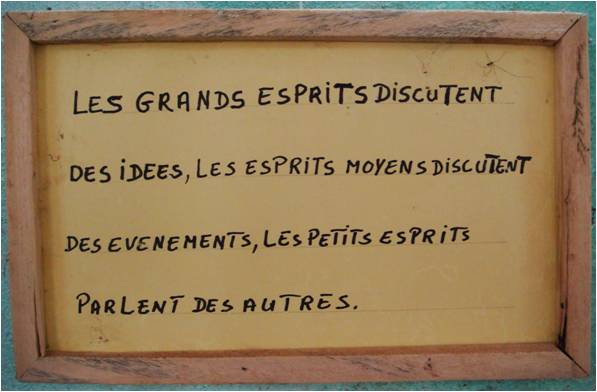 LES GRANDS ESPRITS DISCUTENT
DES IDEES, LES ESPRITS MOYENS DISCUTENT
DES EVENEMENTS, LES PETITS ESPRITS
PARLENT DES AUTRES.